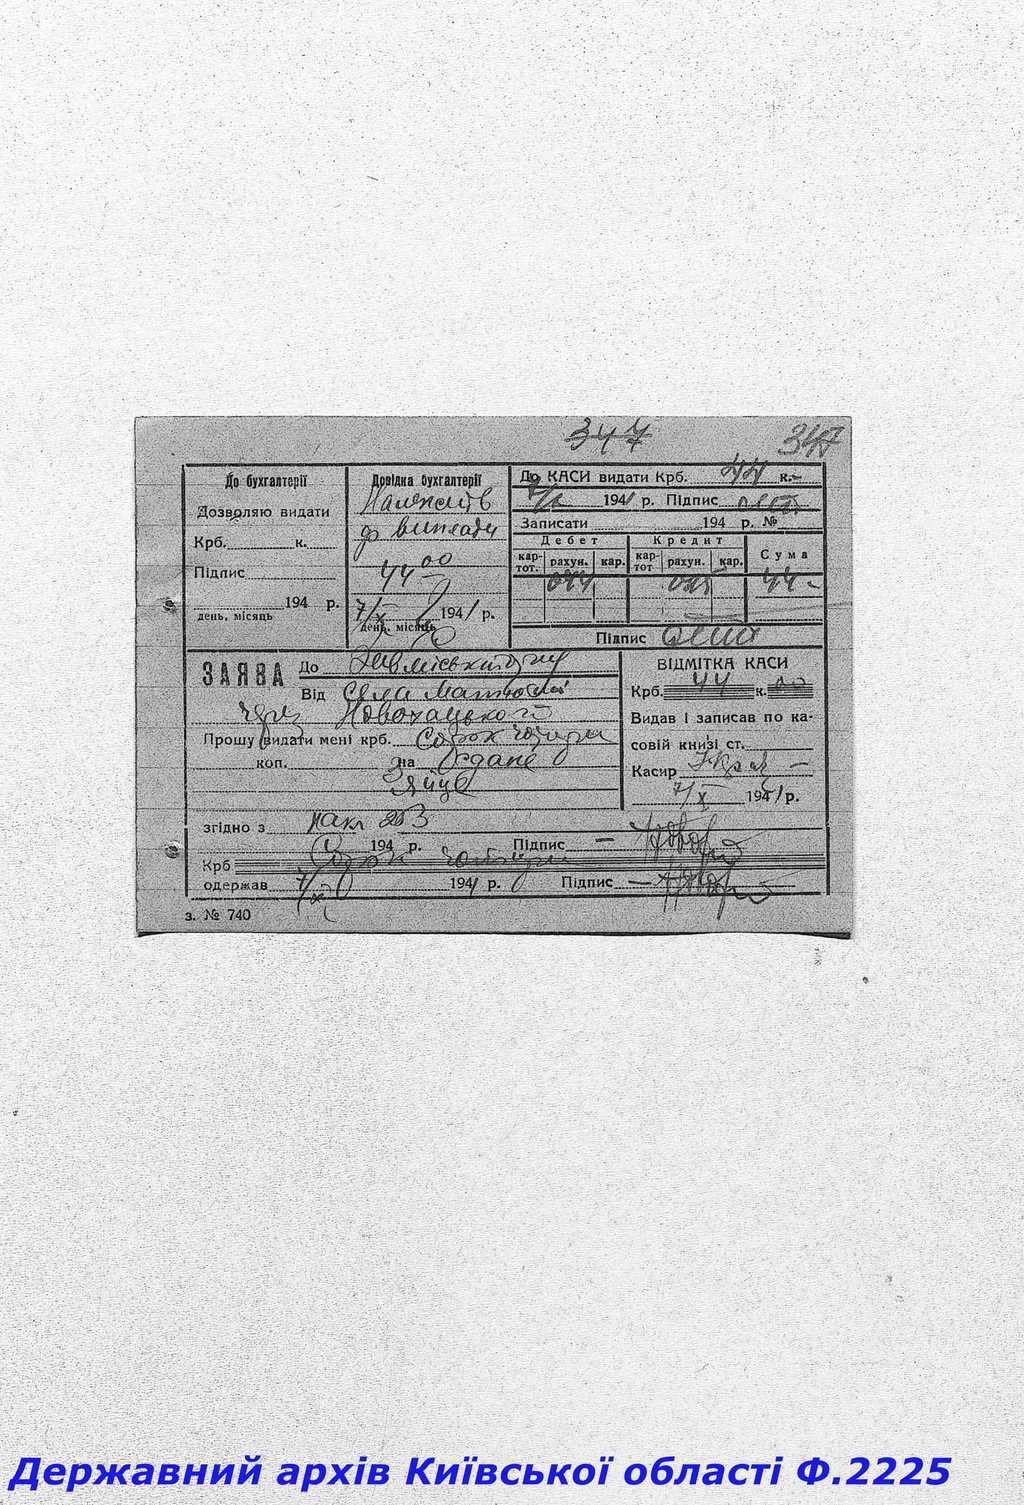 347 347
До бухгалтерії
Дозволяю видати
Крб. к.
Підпис
194 р.
день, місяць
Довідка бухгалтерії
Належить
до виплати
44 00
7/X 1941 р.
день, місяць
До КАСИ видати Крб. 44 к. –
7/X 1941 р. Підпис
Записати 194 р. №
Дебет Кредит Сума
кар-тот. рахун. кар. кар-тот рахун. кар.
44 –
Підпис
ЗАЯВА До
Від Села Матюші
через Новохацького
Прошу видати мені крб. Сорок чотири
коп. на здане
Яйце
ВІДМІТКА КАСИ
Крб. 44 к. 00
Видав і записав по ка-
совій книзі ст.
Касир
7/X 1941 р.
згідно з накл 253
194 р. Підпис
Крб Сорок чотири
одержав 7/X 1941 р. Підпис
з. № 740
Державний архів Київської області Ф.2225